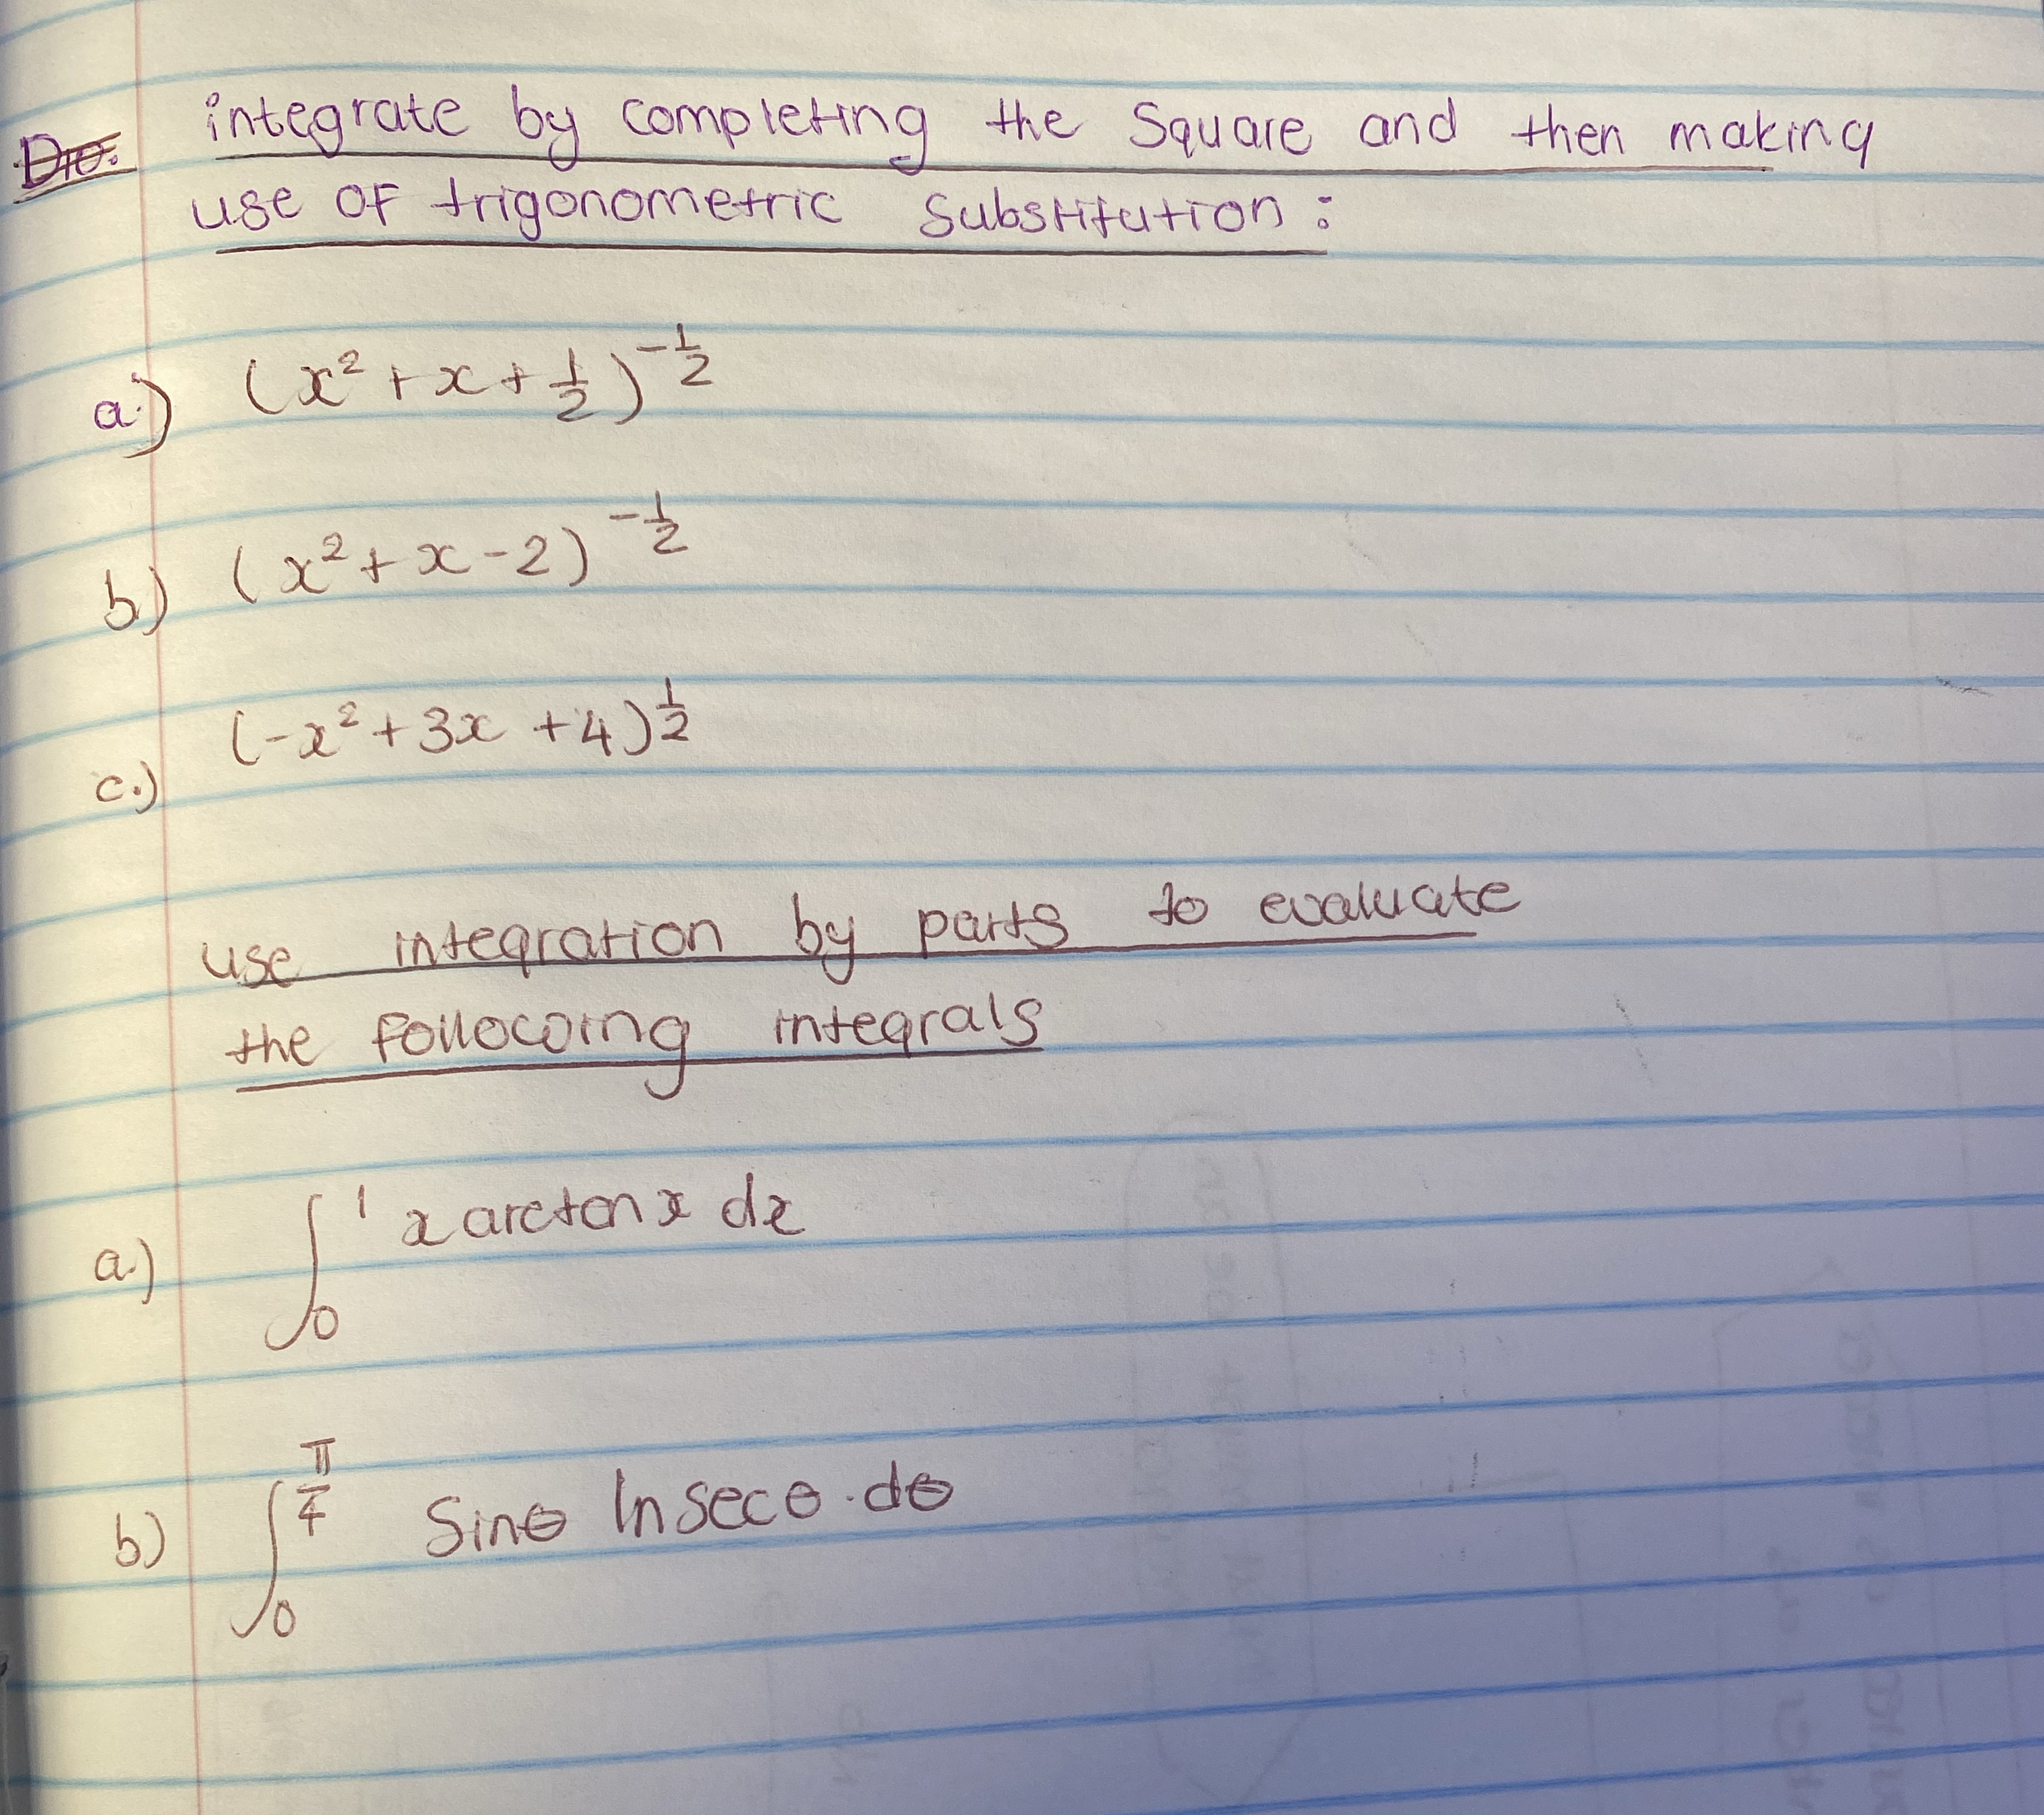 integrate by completing the Square and then making
use of trigonometric Substitution:
a.) (x² + x + 1/2)^-1/2
b.) (x² + x - 2)^-1/2
c.) (-x² + 3x + 4)^1/2
use integration by parts to evaluate
the following integrals
a.) ∫₀¹ x arctan x dx
b) ∫₀^π/4 Sinθ ln secθ · dθ